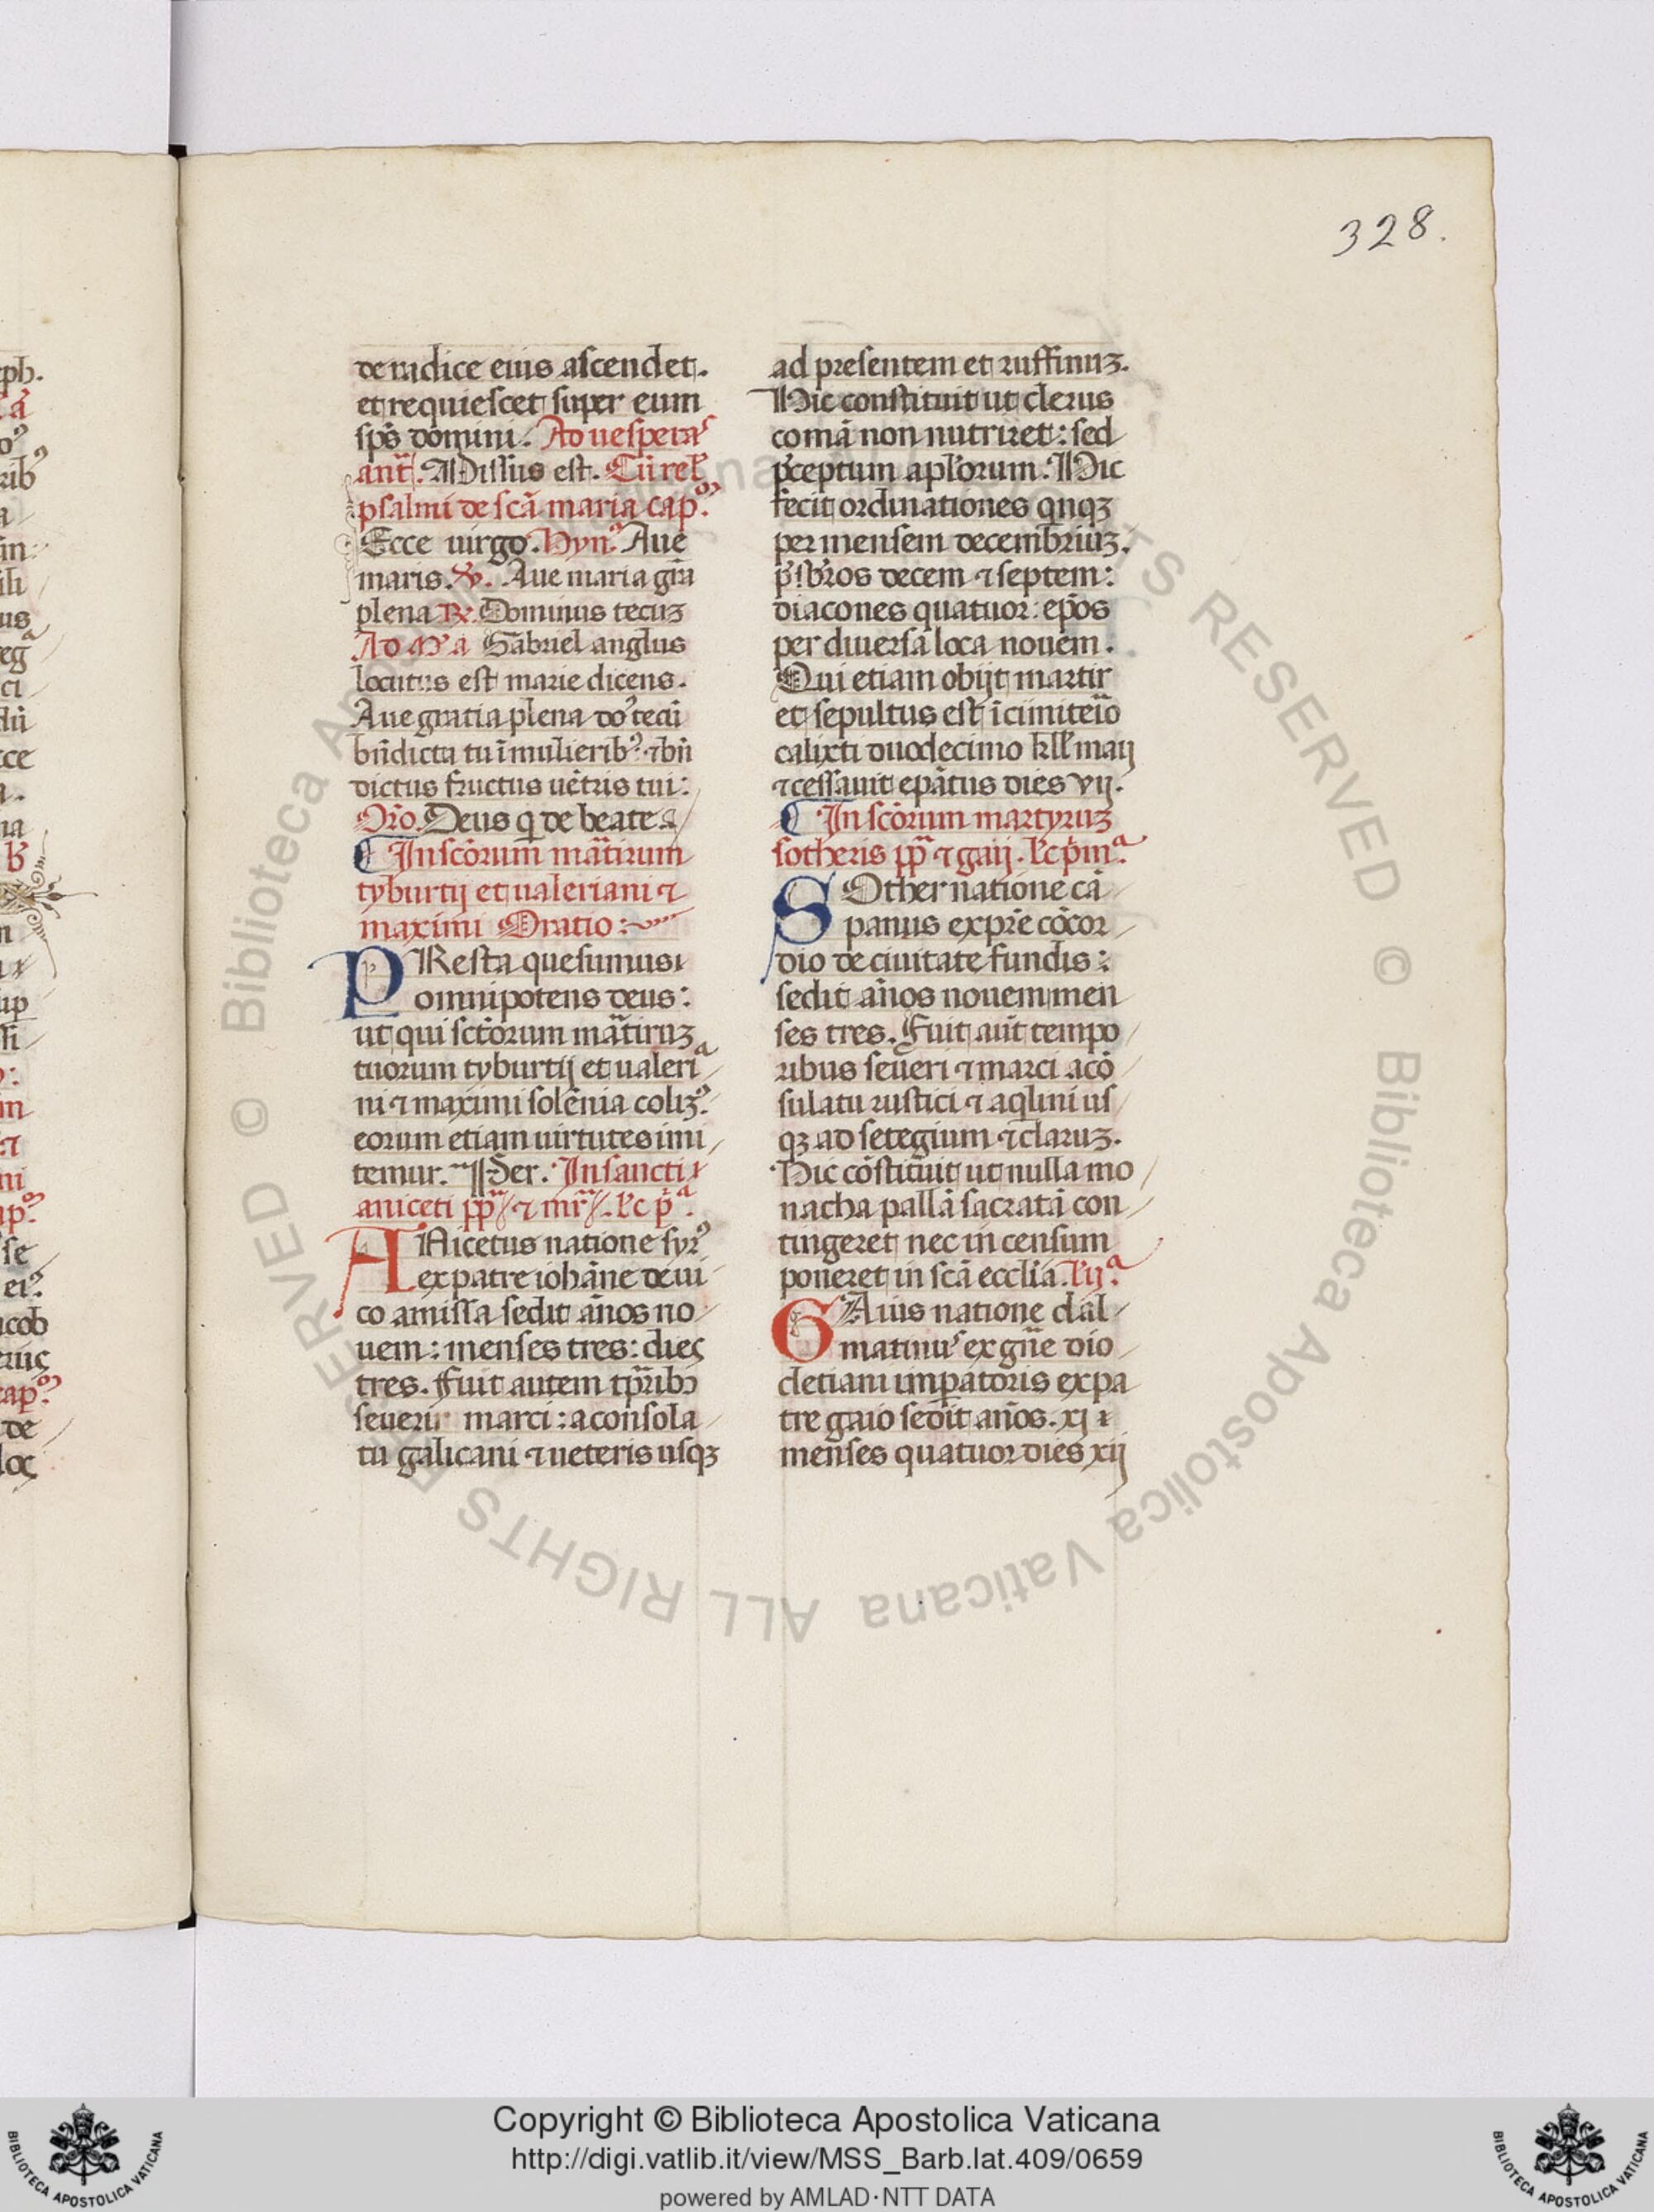 328.
de radice eius ascendet.
et requiescet super eum
sp̄s domini. Ad uesperas
ant̄. Missus est. Cū rel̄
psalmi de scā maria cap̊.
Ecce uirgo. Hyn̊. Aue
maris. ℣. Aue maria gr̄a
plena ℟. Dominus tecuꝫ
Ad Mᵃ Gabriel anglus
locutus est marie dicens.
Aue gratia plena do᷒ tecū
bn̄dicta tu ī mulierib᷒ ⁊ bn̄
dictus fructus uētris tui:
Or̄o. Deus q̄ de beate
¶ In scōrum mārtirum
tyburtij et ualeriani ⁊
maximi Oratio:
PResta quesumus
omnipotens deus:
ut qui sctōrum mārtiruꝫ
tuorum tyburtij et ualeriᵃ
ni ⁊ maximi solēnia colim᷒
eorum etiam uirtutes imi
temur. Per. In sancti
aniceti pp̄ ⁊ mr̄. l̄c p̄ᵃ.
ANicetus natione syr᷒
ex patre iohāne de ui
co amissa sedit ānos no
uem: menses tres: dies
tres. Fuit autem tp̄rib᷒
seueri marci: a consola
tu galicani ⁊ ueteris usqꝫ
ad presentem et ruffinuꝫ.
Hic constituit ut clerus
comā non nutriret: sed
p̄ceptum apl̄orum. Hic
fecit ordinationes qnqꝫ
per mensem decembriuꝫ.
p̄sb̄ros decem ⁊ septem:
diacones quatuor: ep̄os
per diuersa loca nouem.
Qui etiam obijt martir
et sepultus est ī cimiteīo
calixti duodecimo kll̄ maij
⁊ cessauit ep̄atus dies vij.
¶ In scōrum martyruꝫ
sotheris pp̄ ⁊ gaij. l̄c p̄mᵃ.
SOther natione cā
panus ex pr̄e cōcor
dio de ciuitate fundis:
sedit ānos nouem men
ses tres. Fuit aūt tempo
ribus seueri ⁊ marci a cō
sulatu rustici ⁊ aq̄lini us
qꝫ ad setegium ⁊ claruꝫ.
Hic cōstituit ut nulla mo
nacha pallā sacratā con
tingeret nec incensum
poneret in scā eccl̄ia. l̄ijᵃ.
GAius natione dal
matinus ex gn̄e dio
cletiani imp̄atoris ex pa
tre gaio sedit ānos. xj
menses quatuor dies xij
© Biblioteca Apostolica Vaticana ALL RIGHTS RESERVED
© Biblioteca Apostolica Vaticana ALL RIGHTS RESERVED
Copyright © Biblioteca Apostolica Vaticana
http://digi.vatlib.it/view/MSS_Barb.lat.409/0659
powered by AMLAD·NTT DATA
BIBLIOTECA APOSTOLICA VATICANA
BIBLIOTECA APOSTOLICA VATICANA